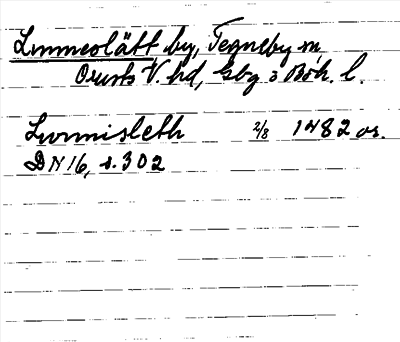 Lunneslätt by, Tegneby sn,
Orusts V. hd, Gbg o Boh. l.
Lunnisleth 2/8 1482 or.
DN 16, s. 302